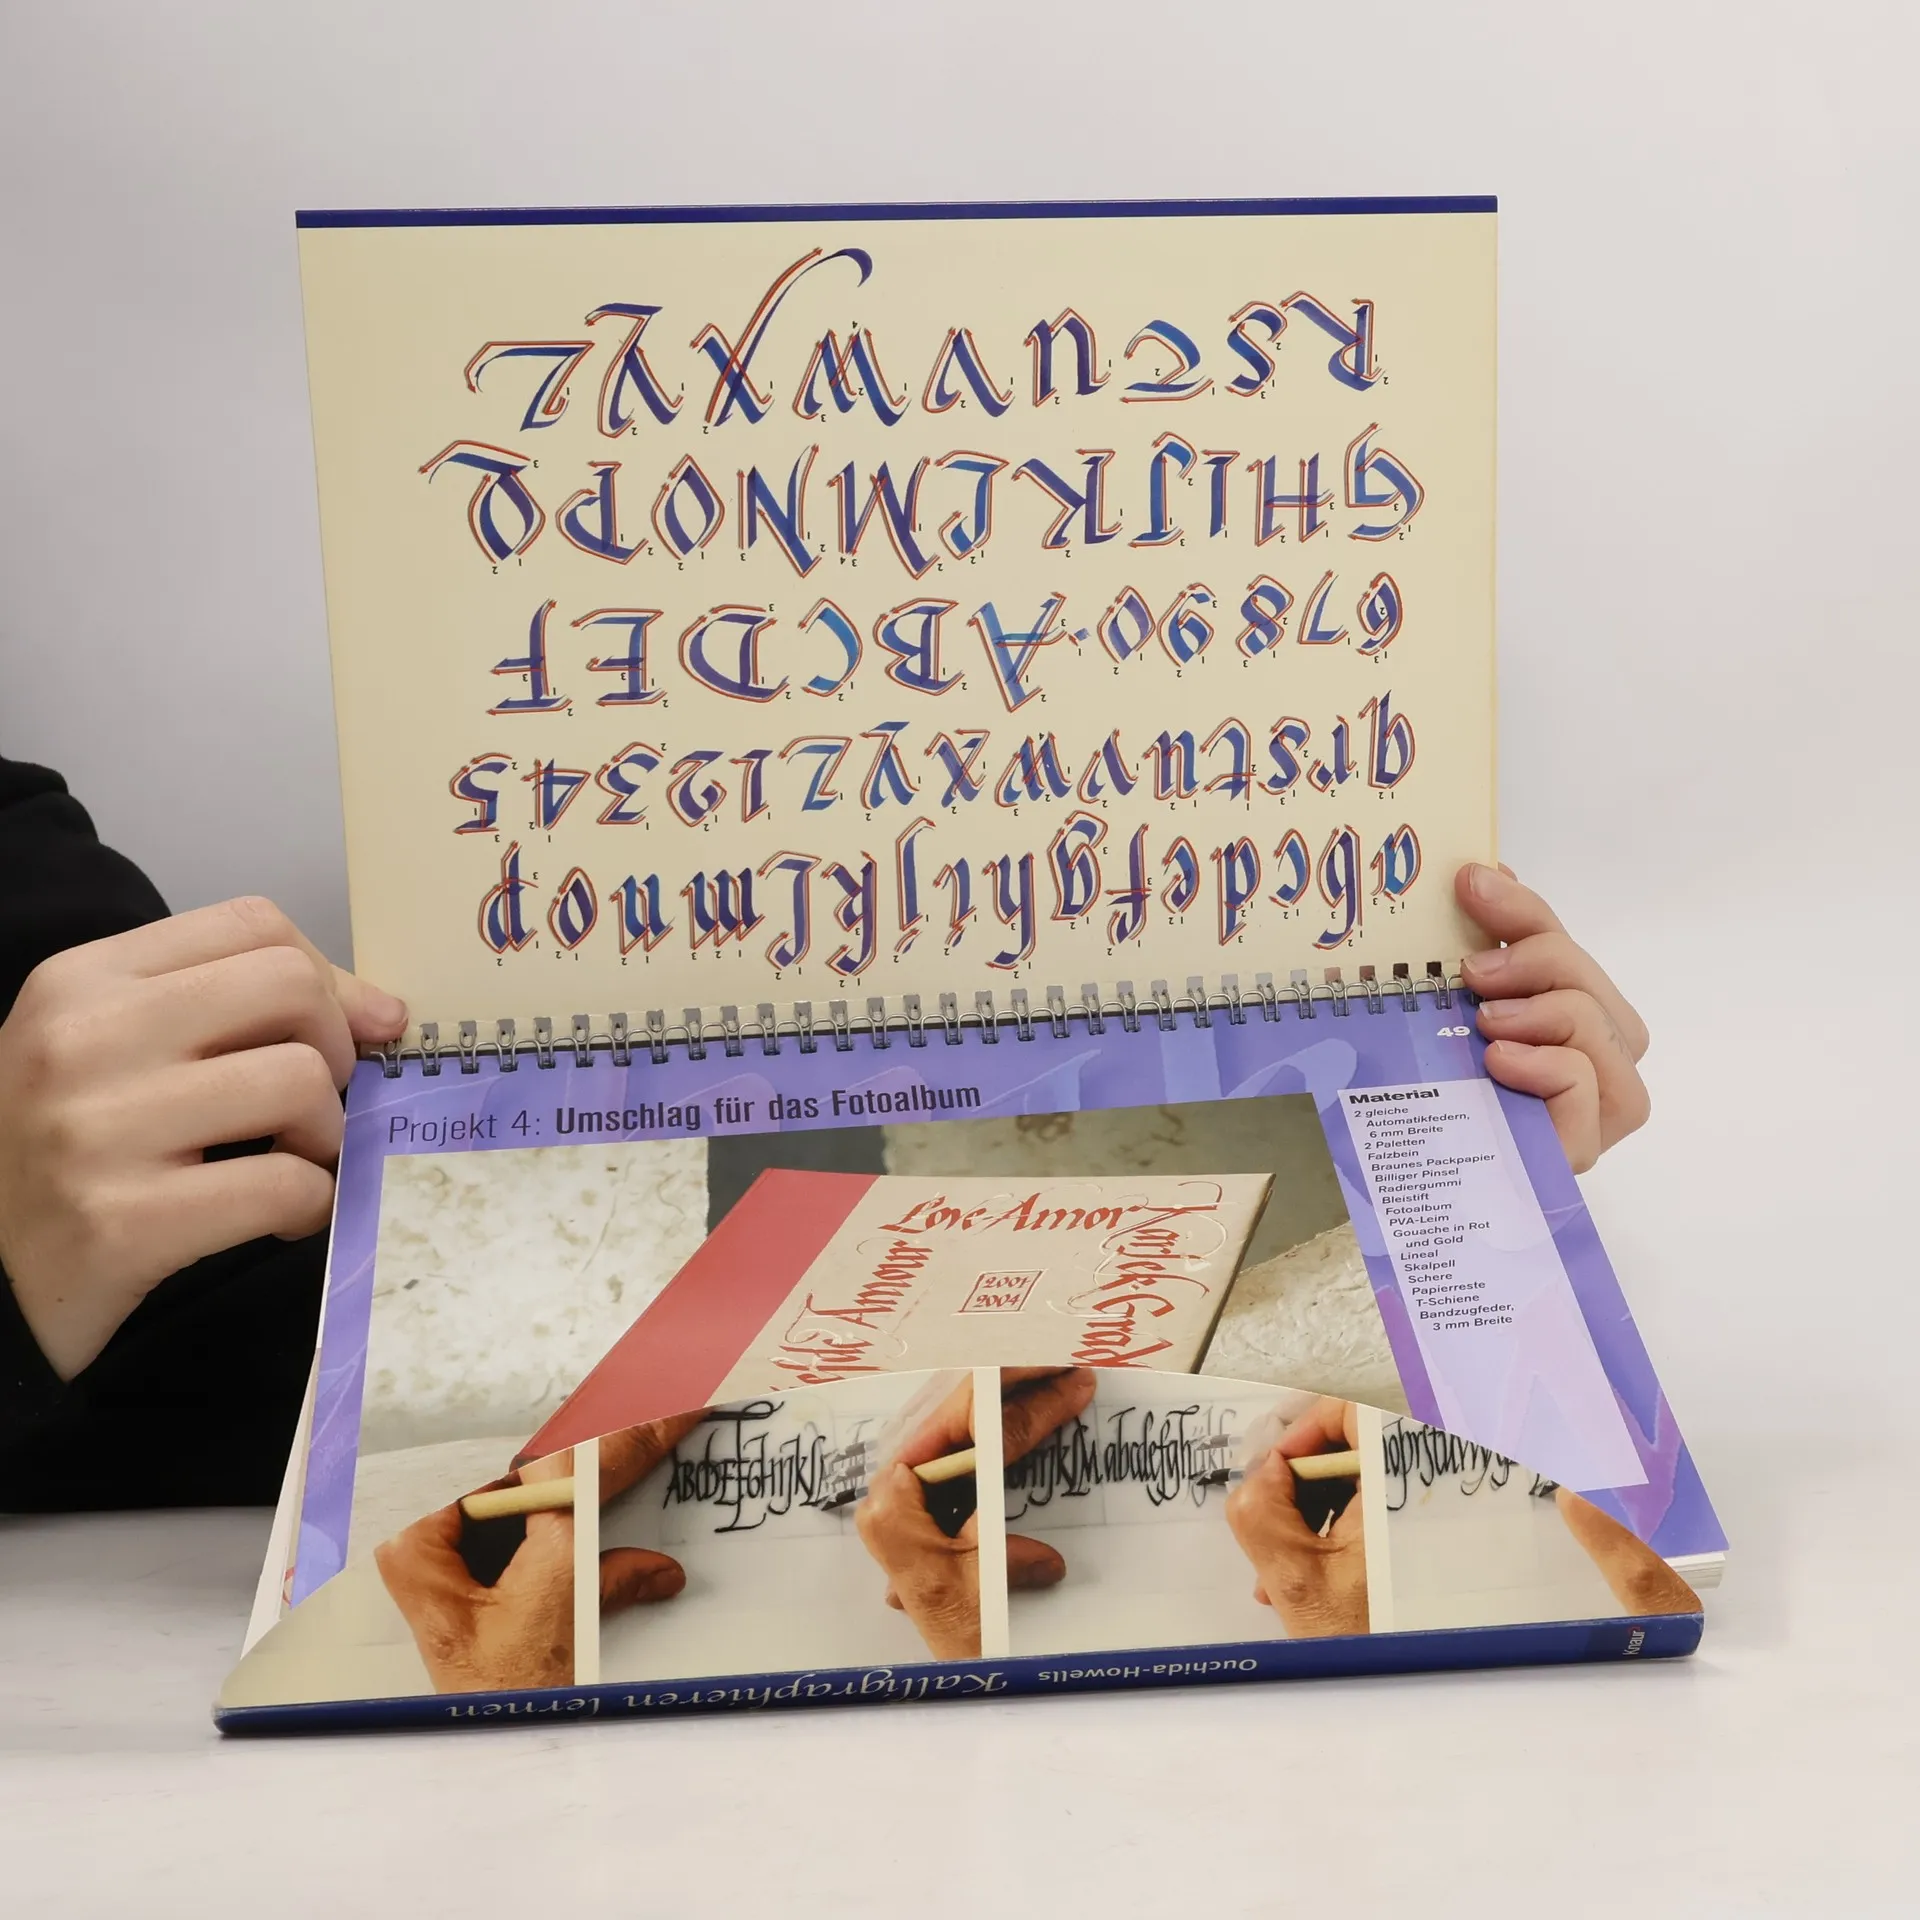 abcdefghijklmnop
qrstuvwxyz12345
67890·ABCDEF
GHIJKLMNOPQ
RSTUVWXYZ
49
Projekt 4: Umschlag für das Fotoalbum
Material
2 gleiche
Automatikfedern,
6 mm Breite
2 Paletten
Falzbein
Braunes Packpapier
Billiger Pinsel
Radiergummi
Bleistift
Fotoalbum
PVA-Leim
Gouache in Rot
und Gold
Lineal
Skalpell
Schere
Papierreste
T-Schiene
Bandzugfeder,
3 mm Breite
Love·Amor
Amour
2001
2004
ABCDEFGHIJKL
abcdefgh
Kalligraphieren lernen
Ouchida-Howells
Knaur